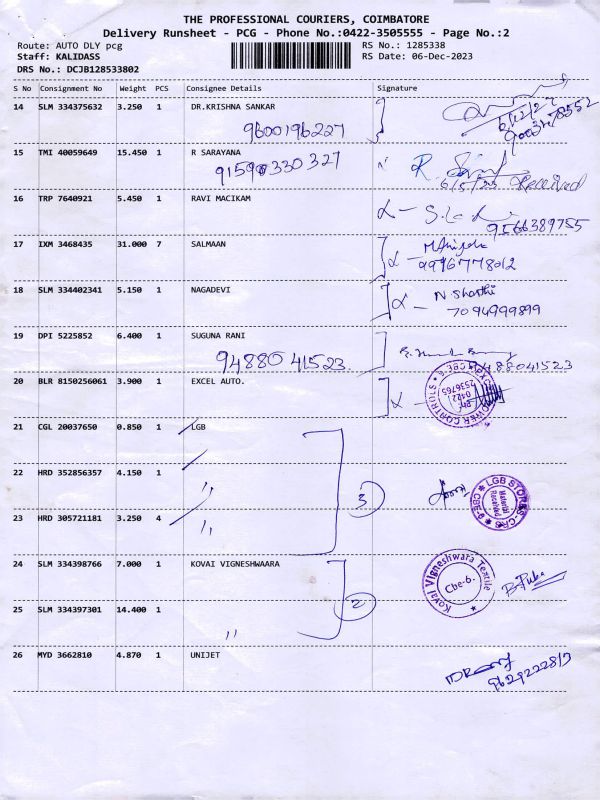 THE PROFESSIONAL COURIERS, COIMBATORE
Delivery Runsheet - PCG - Phone No.:0422-3505555 - Page No.:2
Route: AUTO DLY pcg RS No.: 1285338
Staff: KALIDASS RS Date: 06-Dec-2023
DRS No.: DCJB128533802
S No Consignment No Weight PCS Consignee Details Signature
14 SLM 334375632 3.250 1 DR.KRISHNA SANKAR
9600196227
15 TMI 40059649 15.450 1 R SARAYANA
91590330327 6/5/23 Received
16 TRP 7640921 5.450 1 RAVI MACIKAM
9566389755
17 IXM 3468435 31.000 7 SALMAAN
9996778012
18 SLM 334402341 5.150 1 NAGADEVI N. Shanthi
7094999899
19 DPI 5225852 6.400 1 SUGUNA RANI
9488041523 9488041523
20 BLR 8150256061 3.900 1 EXCEL AUTO.
21 CGL 20037650 0.850 1 LGB
22 HRD 352856357 4.150 1 〃
3
LGB STORES-CAS CBE-6 Material Received
23 HRD 305721181 3.250 4 〃
24 SLM 334398766 7.000 1 KOVAI VIGNESHWAARA
Kovai Vigneshwara Textile Cbe-6.
2
25 SLM 334397301 14.400 1 〃
26 MYD 3662810 4.870 1 UNIJET
9629222813